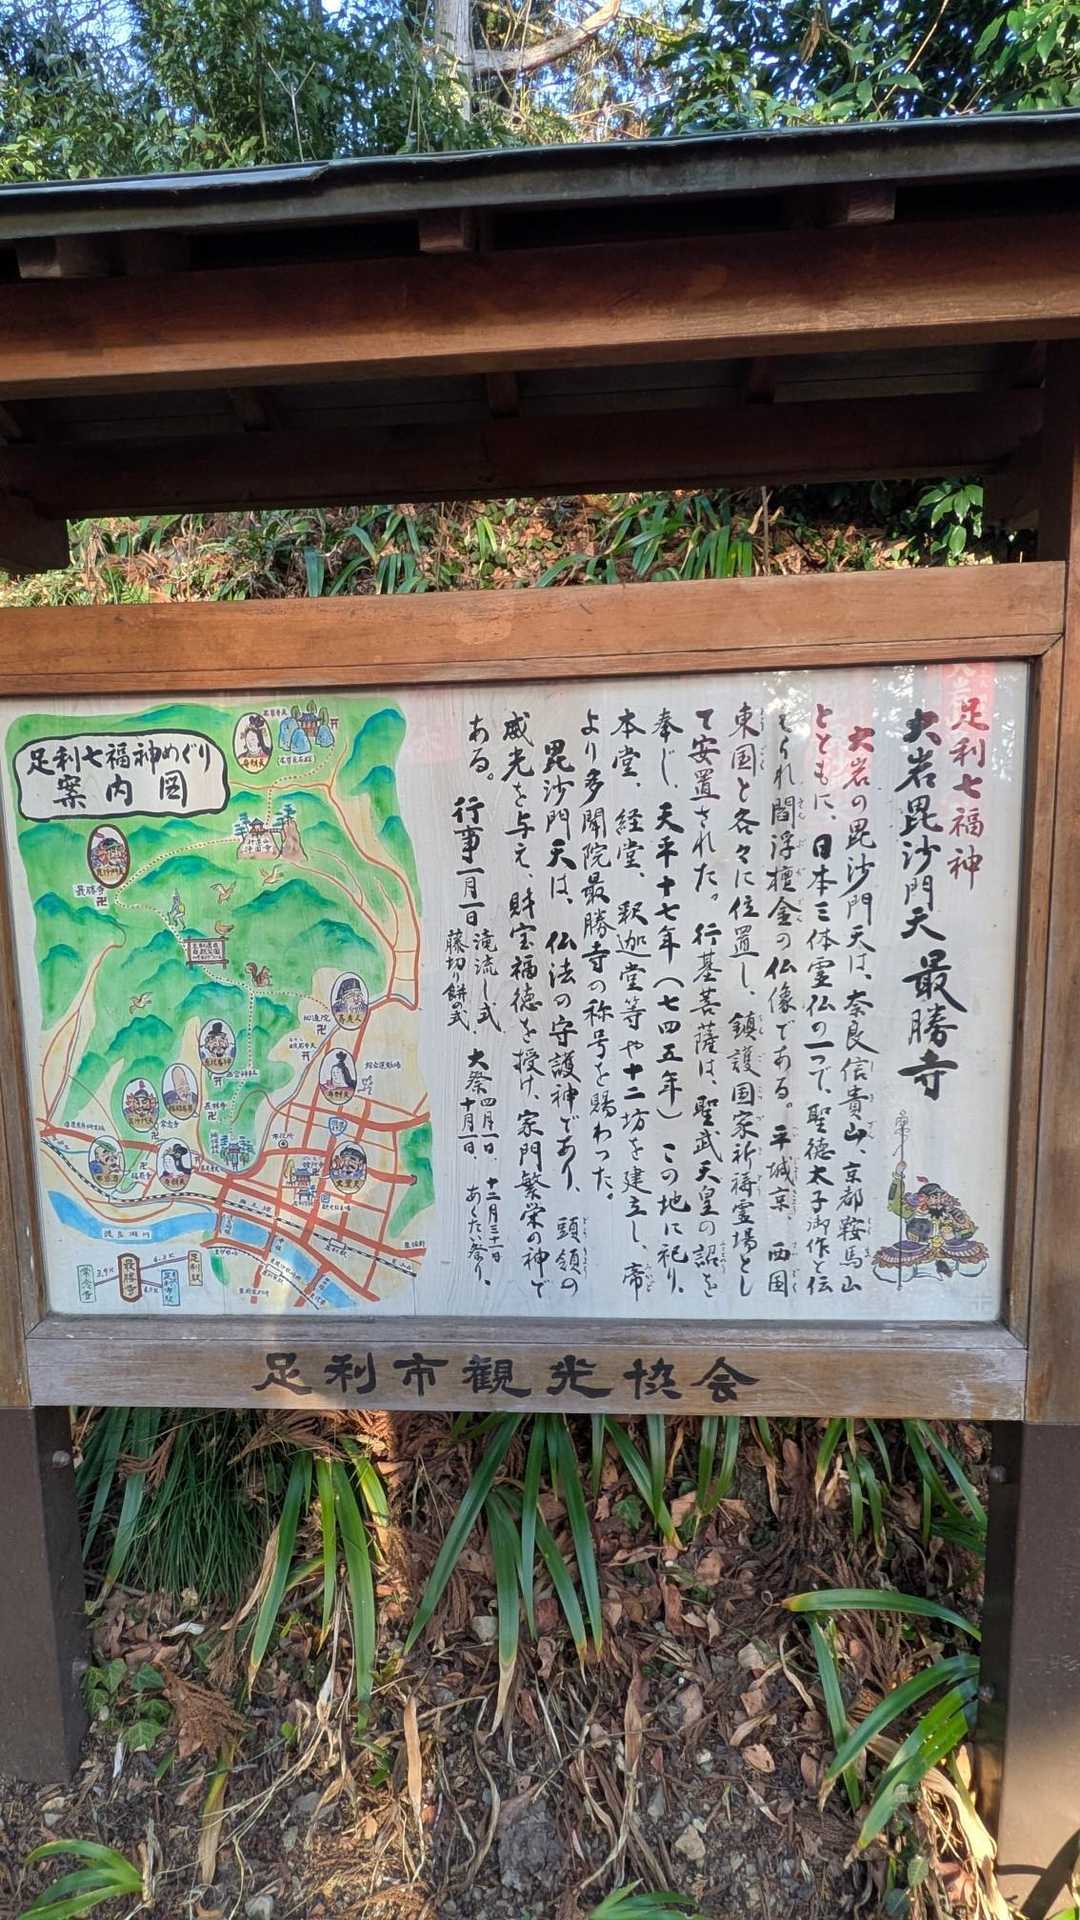 足利七福神
大岩毘沙門天 最勝寺
大岩の毘沙門天は、奈良信貴山、京都鞍馬山
とともに、日本三体霊仏の一つで、聖徳太子御作と伝
えられ閻浮檀金の仏像である。平城京、西国
東国と各々に位置し、鎮護国家祈祷霊場とし
て安置された。行基菩薩は、聖武天皇の詔を
奉じ、天平十七年(七四五年)この地に祀り、
本堂、経堂、釈迦堂等や十二坊を建立し、帝
より多聞院最勝寺の称号を賜わった。
毘沙門天は、仏法の守護神であり、頭領の
威光を与え、財宝福徳を授け、家門繁栄の神で
ある。
行事 一月一日 滝流し式 大祭四月一日、十二月三十一日 あくたい祭り、
藤切り餅の式 十月一日、
足利七福神めぐり
案内図
最勝寺
西宮神社
長林寺
常念寺
福厳寺
市役所
渡良瀬川
常念寺
3.9K
最勝寺
6.3K
足利駅
足利市駅
足利市観光協会